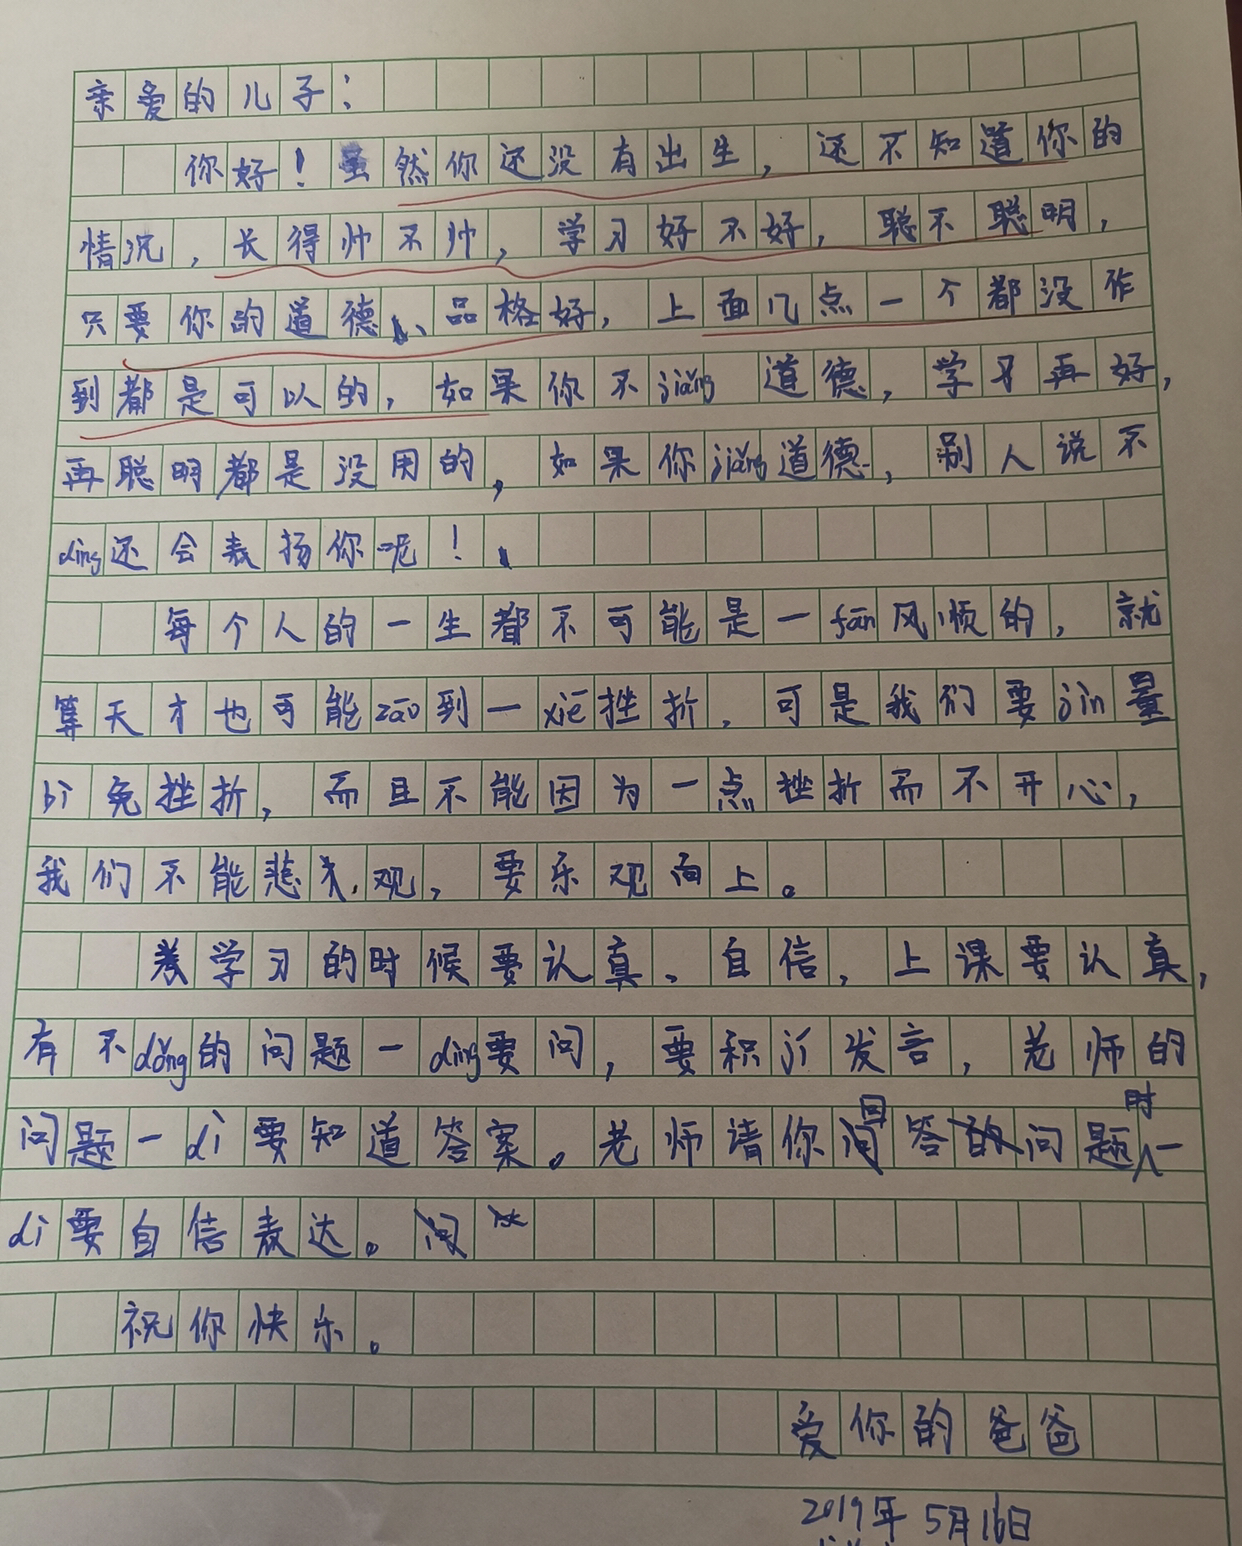 亲爱的儿子：
你好！虽然你还没有出生，还不知道你的
情况，长得帅不帅，学习好不好，聪不聪明，
只要你的道德、品格好，上面几点一个都没作
到都是可以的，如果你不jiǎng道德，学习再好，
再聪明都是没用的，如果你jiǎng道德，别人说不
dìng还会表扬你呢！
每个人的一生都不可能是一fān风顺的，就
算天才也可能zāo到一xiē挫折，可是我们要jìn量
bì免挫折，而且不能因为一点挫折而不开心，
我们不能悲观，要乐观向上。
学习的时候要认真、自信，上课要认真，
有不dǒng的问题一dìng要问，要积jí发言，老师的
问题一dì要知道答案。老师请你回答问题时一
dì要自信表达。
祝你快乐。
爱你的爸爸
2019年5月16日